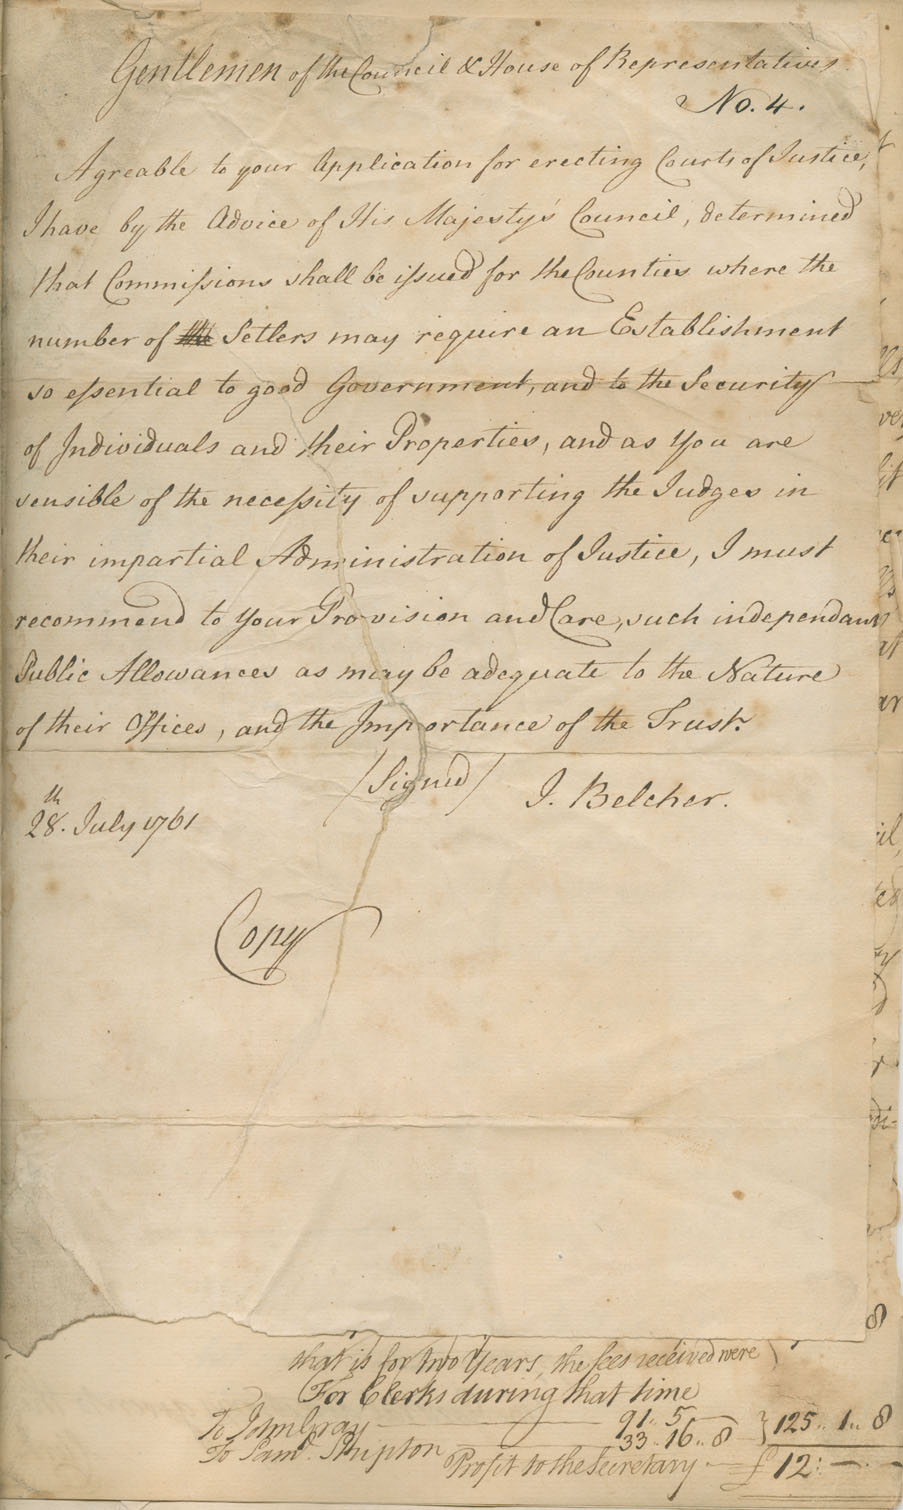 Gentlemen of the Council & House of Representatives
No. 4.
Agreable to your Application for erecting Courts of Justice,
I have by the Advice of His Majesty's Council, determined
that Commissions shall be issued for the Counties where the
number of Setlers may require an Establishment
so essential to good Government, and to the Security
of Individuals and their Properties, and as you are
sensible of the necessity of supporting the Judges in
their impartial Administration of Justice, I must
recommend to your Provision and Care, such independant
Public Allowances as may be adequate to the Nature
of their Offices, and the Importance of the Trust.
(Signed) J. Belcher.
28.th July 1761
Copy
that is for two Years, the fees received were
For Clerks during that time
To John Gray 91.. 5
To Sam.l Shipton 33.. 16.. 8 } 125.. 1.. 8
Profit to the Secretary £ 12: